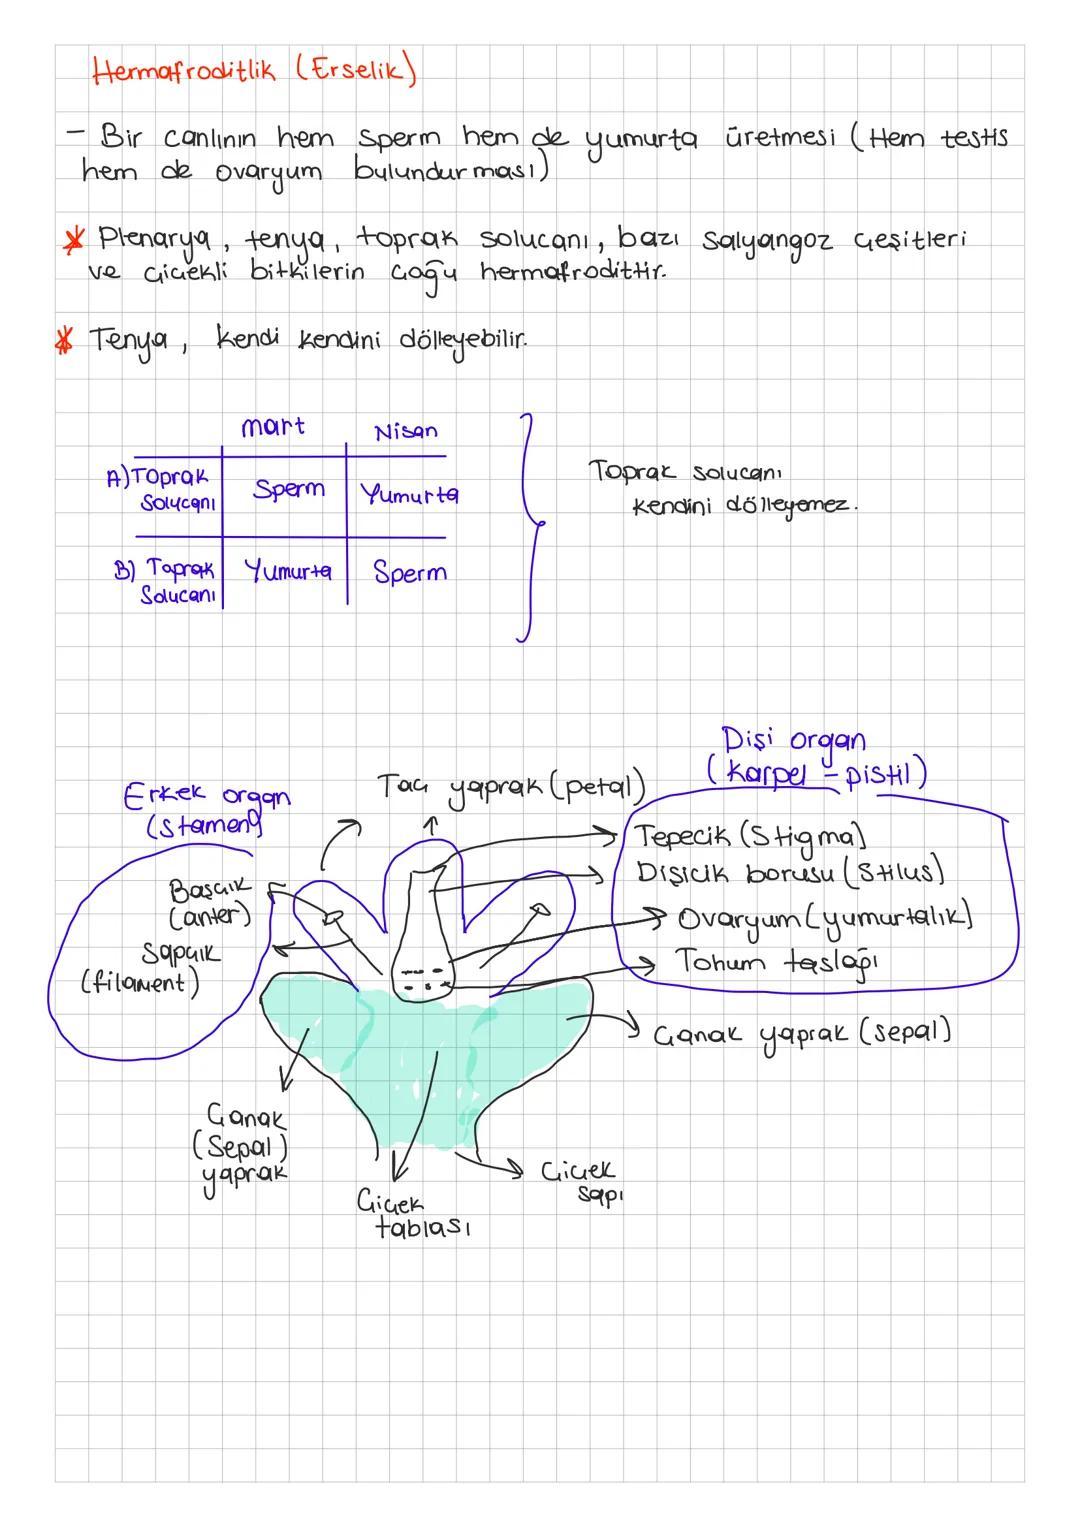 Hermafroditlik (Erselik)
- Bir canlının hem sperm hem de yumurta üretmesi (Hem testis
hem de ovaryum bulundurması)
* Plenarya, tenya, toprak solucanı, bazı salyangoz çeşitleri
ve çiçekli bitkilerin çoğu hermafrodittir.
* Tenya, kendi kendini dölleyebilir.
mart Nisan
A) Toprak Solucanı Sperm Yumurta
B) Toprak Solucanı Yumurta Sperm
Toprak solucanı
kendini dölleyemez.
Dişi organ
(karpel - pistil)
Erkek organ
(stamen)
Taç yaprak (petal)
Tepecik (Stigma)
Dişicik borusu (Stilus)
Ovaryum (yumurtalık)
Tohum taslağı
Başçık
(anter)
Sapçık
(filament)
Çanak yaprak (sepal)
Çanak
(Sepal)
yaprak
Çiçek
tablası
Çiçek
sapı